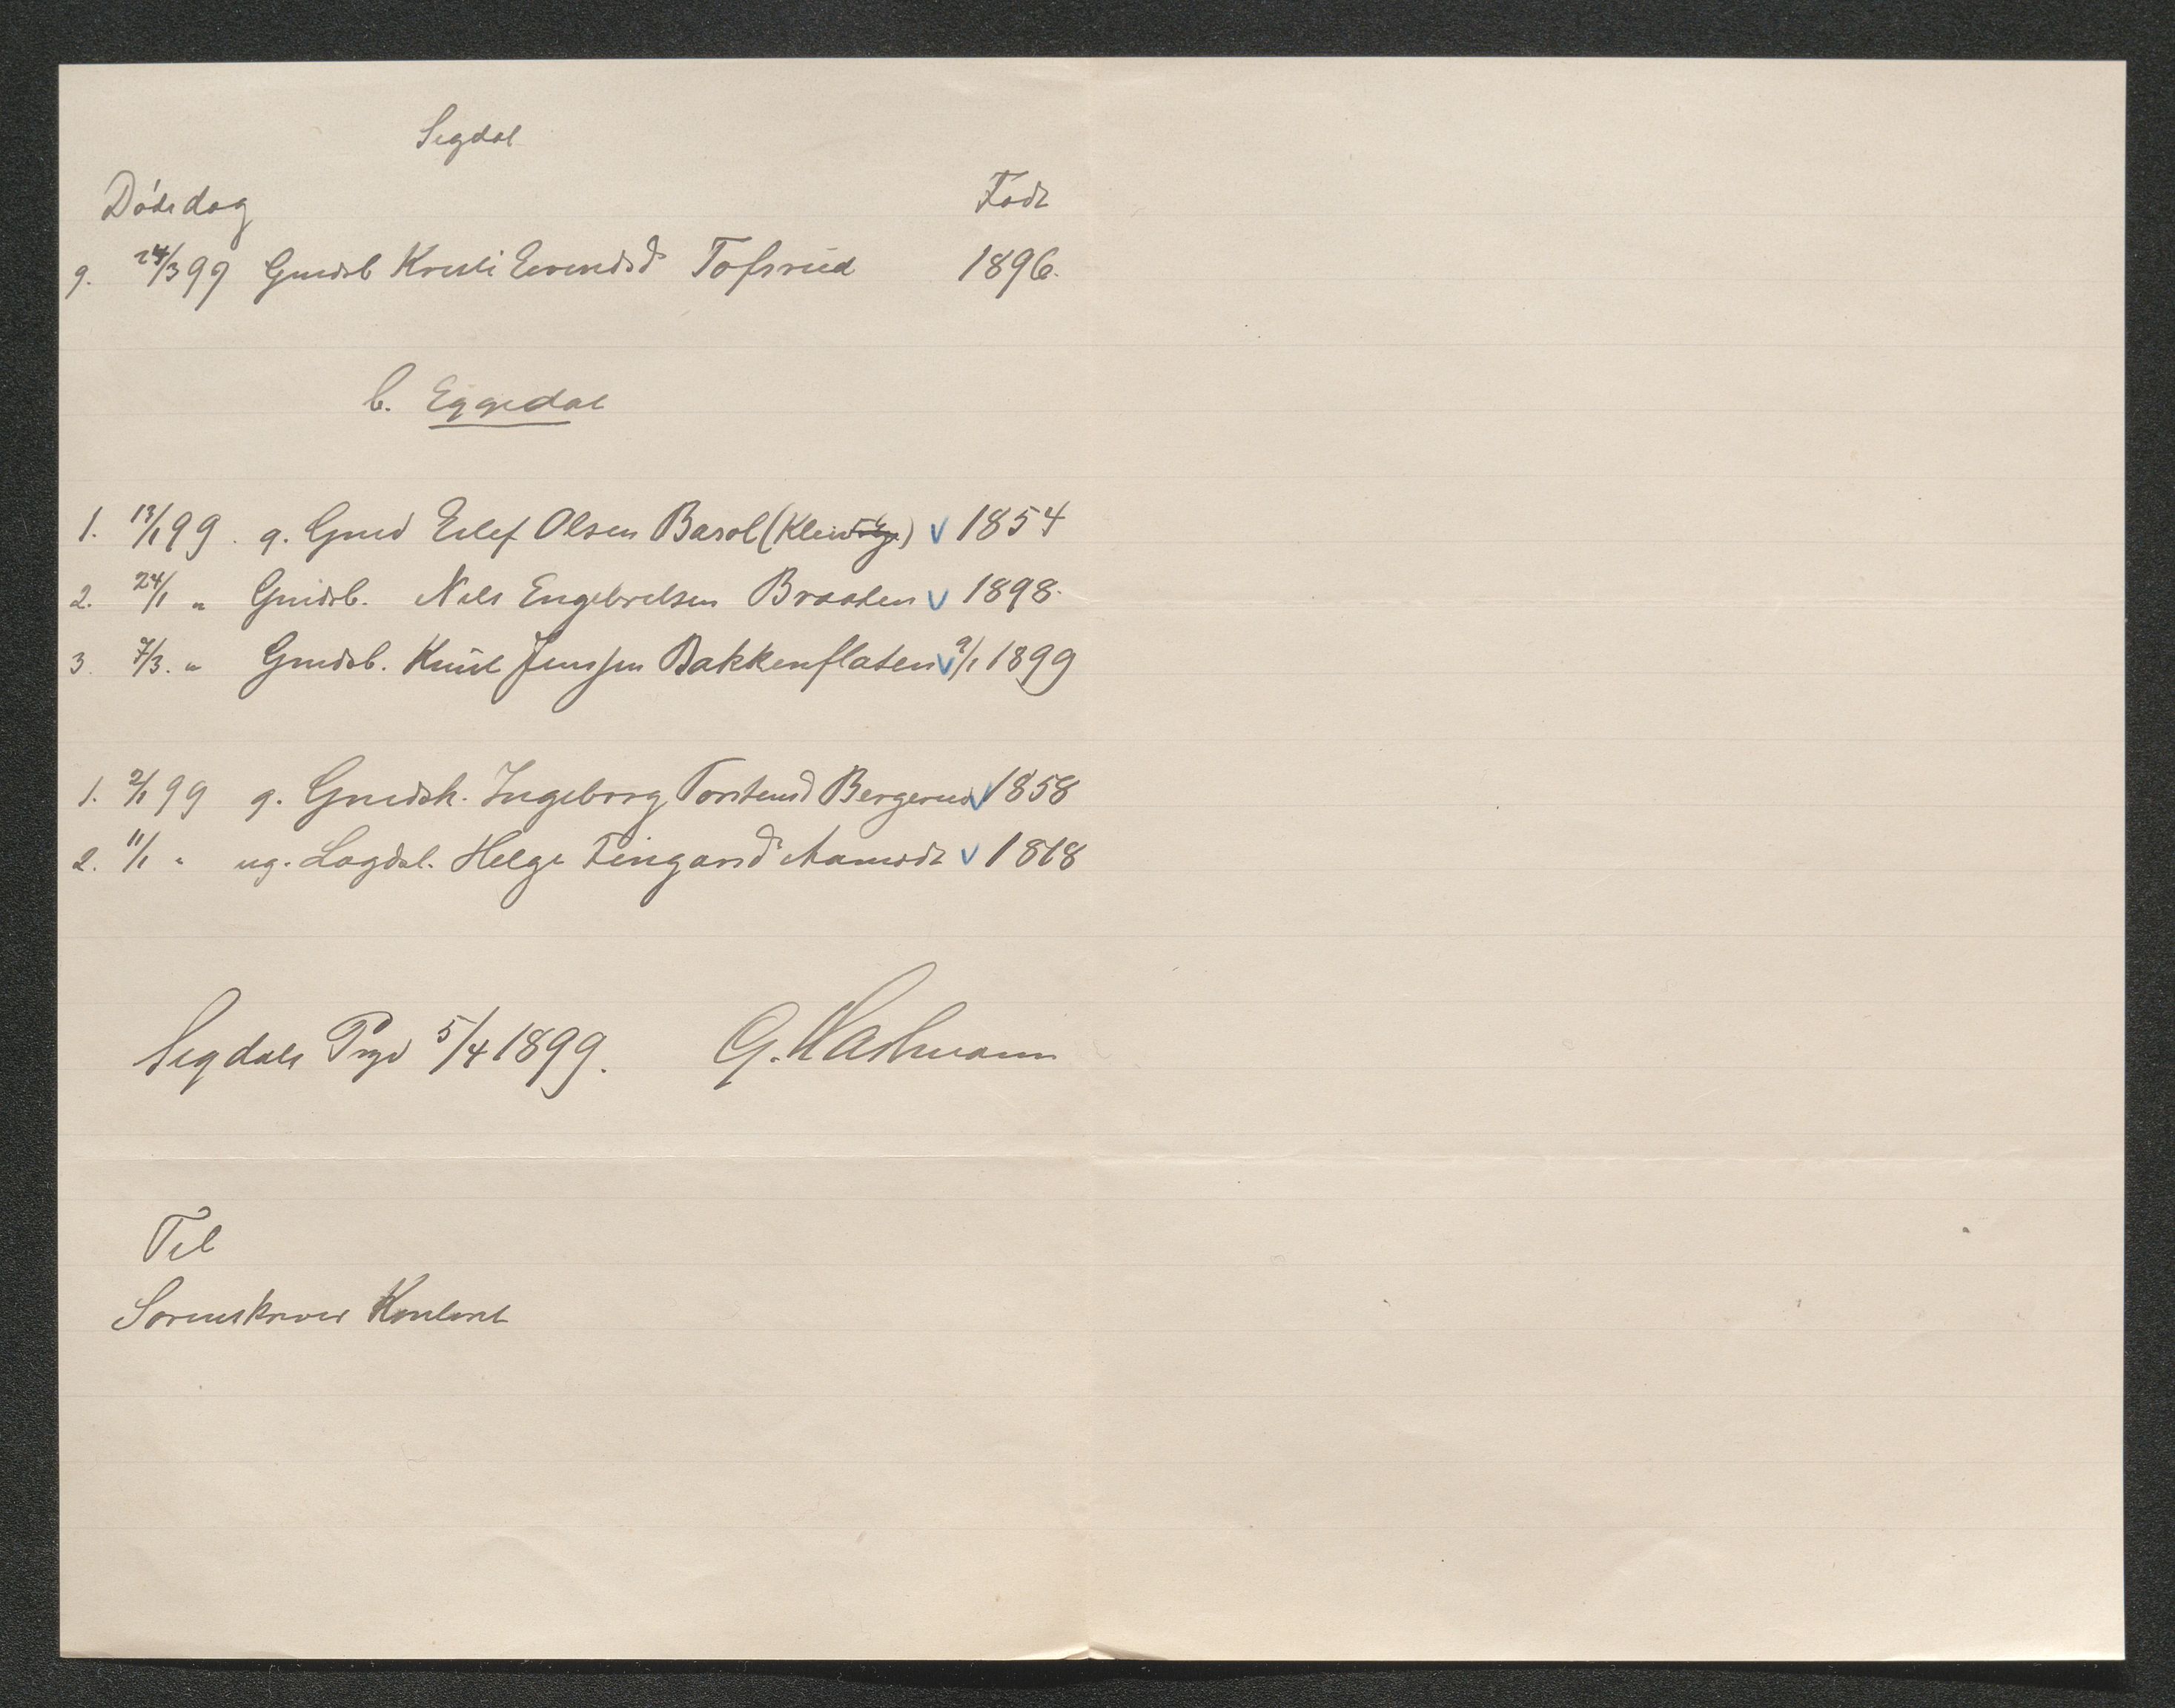 Sigdal
Dødsdag Født
9. 24/3 99 Gmdsb Kristi Eivindsd Tofsrud 1896.
b. Eggedal
1. 13/1 99. g. Gmd Eilef Olsen Basol (Kleiv) v 1854
2. 24/1 " Gmdsb. Nils Engebretsen Braaten v 1898.
3. 7/3. " Gmdsb. Knut Jenssen Bakkenflaten v 9/1 1899
1. 2/1 99 g. Gmdsk. Ingeborg Torstensd Bergerud v 1858
2. 11/1 " ug. Lægdsl. Helge Tingarsd Aamodt v 1818
Sigdals Prgd 5/4 1899. G.
Til
Sorenskriver Kontoret